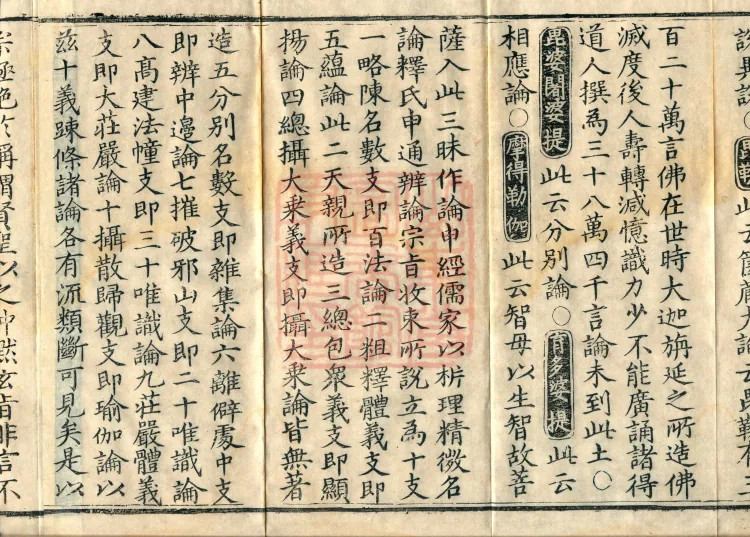 此云篋藏大論云毘勒有三
百二十萬言佛在世時大迦旃延之所造佛
滅度後人壽轉減憶識力少不能廣誦諸得
道人撰為三十八萬四千言論未到此土○
毘婆闍婆提此云分別論○育多婆提此云
相應論○摩得勒伽此云智母以生智故菩
薩入此三昧作論申經儒家以析理精微名
論釋氏申通辨論宗旨收束所說立為十支
一略陳名數支即百法論二粗釋體義支即
五蘊論此二天親所造三總包衆義支即顯
揚論四總攝大乗義支即攝大乗論皆無著
造五分別名數支即雜集論六離僻處中支
即辨中邊論七摧破邪山支即二十唯識論
八髙建法幢支即三十唯識論九莊嚴體義
支即大莊嚴論十攝散歸觀支即瑜伽論以
茲十義踈條諸論各有流類斷可見矣是以
極絕於稱謂賢聖以之沖默玄旨非言不